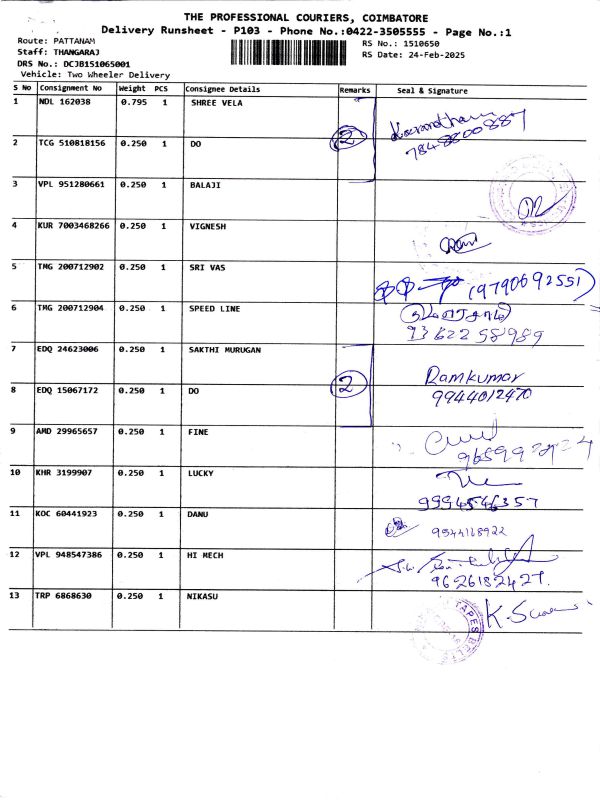 THE PROFESSIONAL COURIERS, COIMBATORE
Delivery Runsheet - P103 - Phone No.:0422-3505555 - Page No.:1
Route: PATTANAM
RS No.: 1510650
Staff: THANGARAJ
RS Date: 24-Feb-2025
DRS No.: DCJB151065001
Vehicle: Two Wheeler Delivery
S No Consignment No Weight PCS Consignee Details Remarks Seal & Signature
1 NDL 162038 0.795 1 SHREE VELA
7848800887
2 TCG 510818156 0.250 1 DO 2
3 VPL 951280661 0.250 1 BALAJI
4 KUR 7003468266 0.250 1 VIGNESH
5 TMG 200712902 0.250 1 SRI VAS
(9790692551)
6 TMG 200712904 0.250 1 SPEED LINE
9362258989
7 EDQ 24623006 0.250 1 SAKTHI MURUGAN
Ramkumar
8 EDQ 15067172 0.250 1 DO 2 9944012470
9 AMD 29965657 0.250 1 FINE
10 KHR 3199907 0.250 1 LUCKY
9994546357
11 KOC 60441923 0.250 1 DANU
9544168922
12 VPL 948547386 0.250 1 HI MECH
9626182427.
13 TRP 6868630 0.250 1 NIKASU
TAPES BELTS